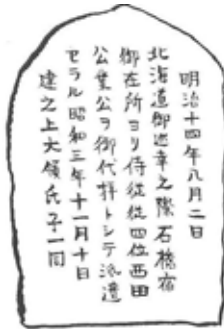 明治十四年八月二日
北海道御巡幸之際石橋宿
御在所ヨリ侍従従四位西田
公業公ヲ御代拝トシテ派遣
セラル昭和三年十一月十日
建之上大領氏子一同